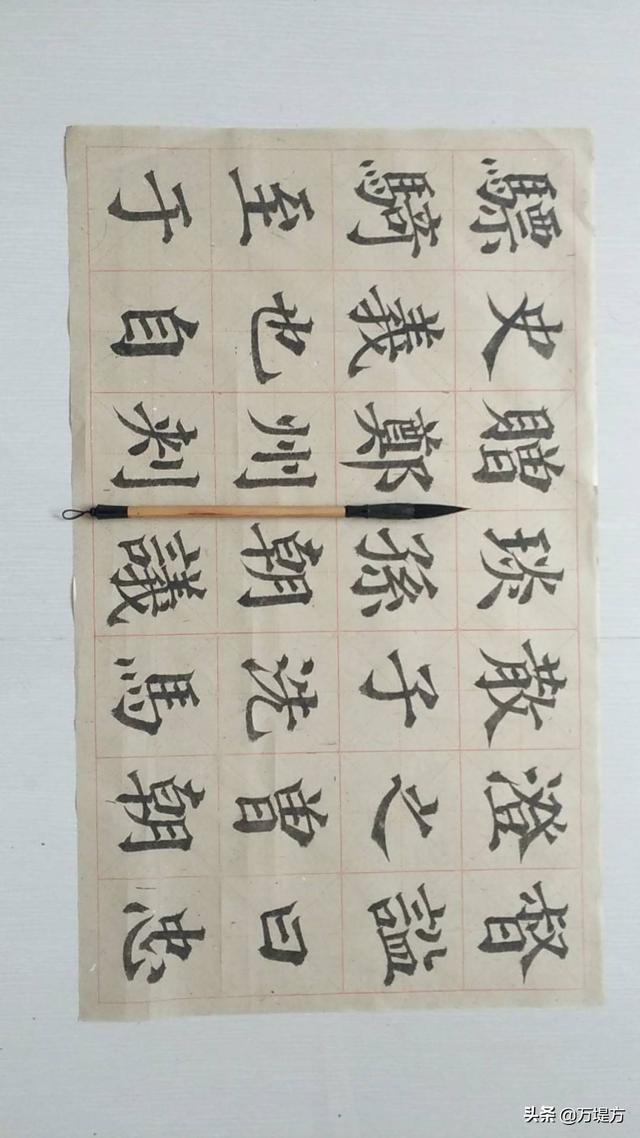 督諡曰忠
澄之曾朝
散子洗馬
琰孫朝議
贈鄭州刺
史義也自
驃騎至于
头条 @万堤方